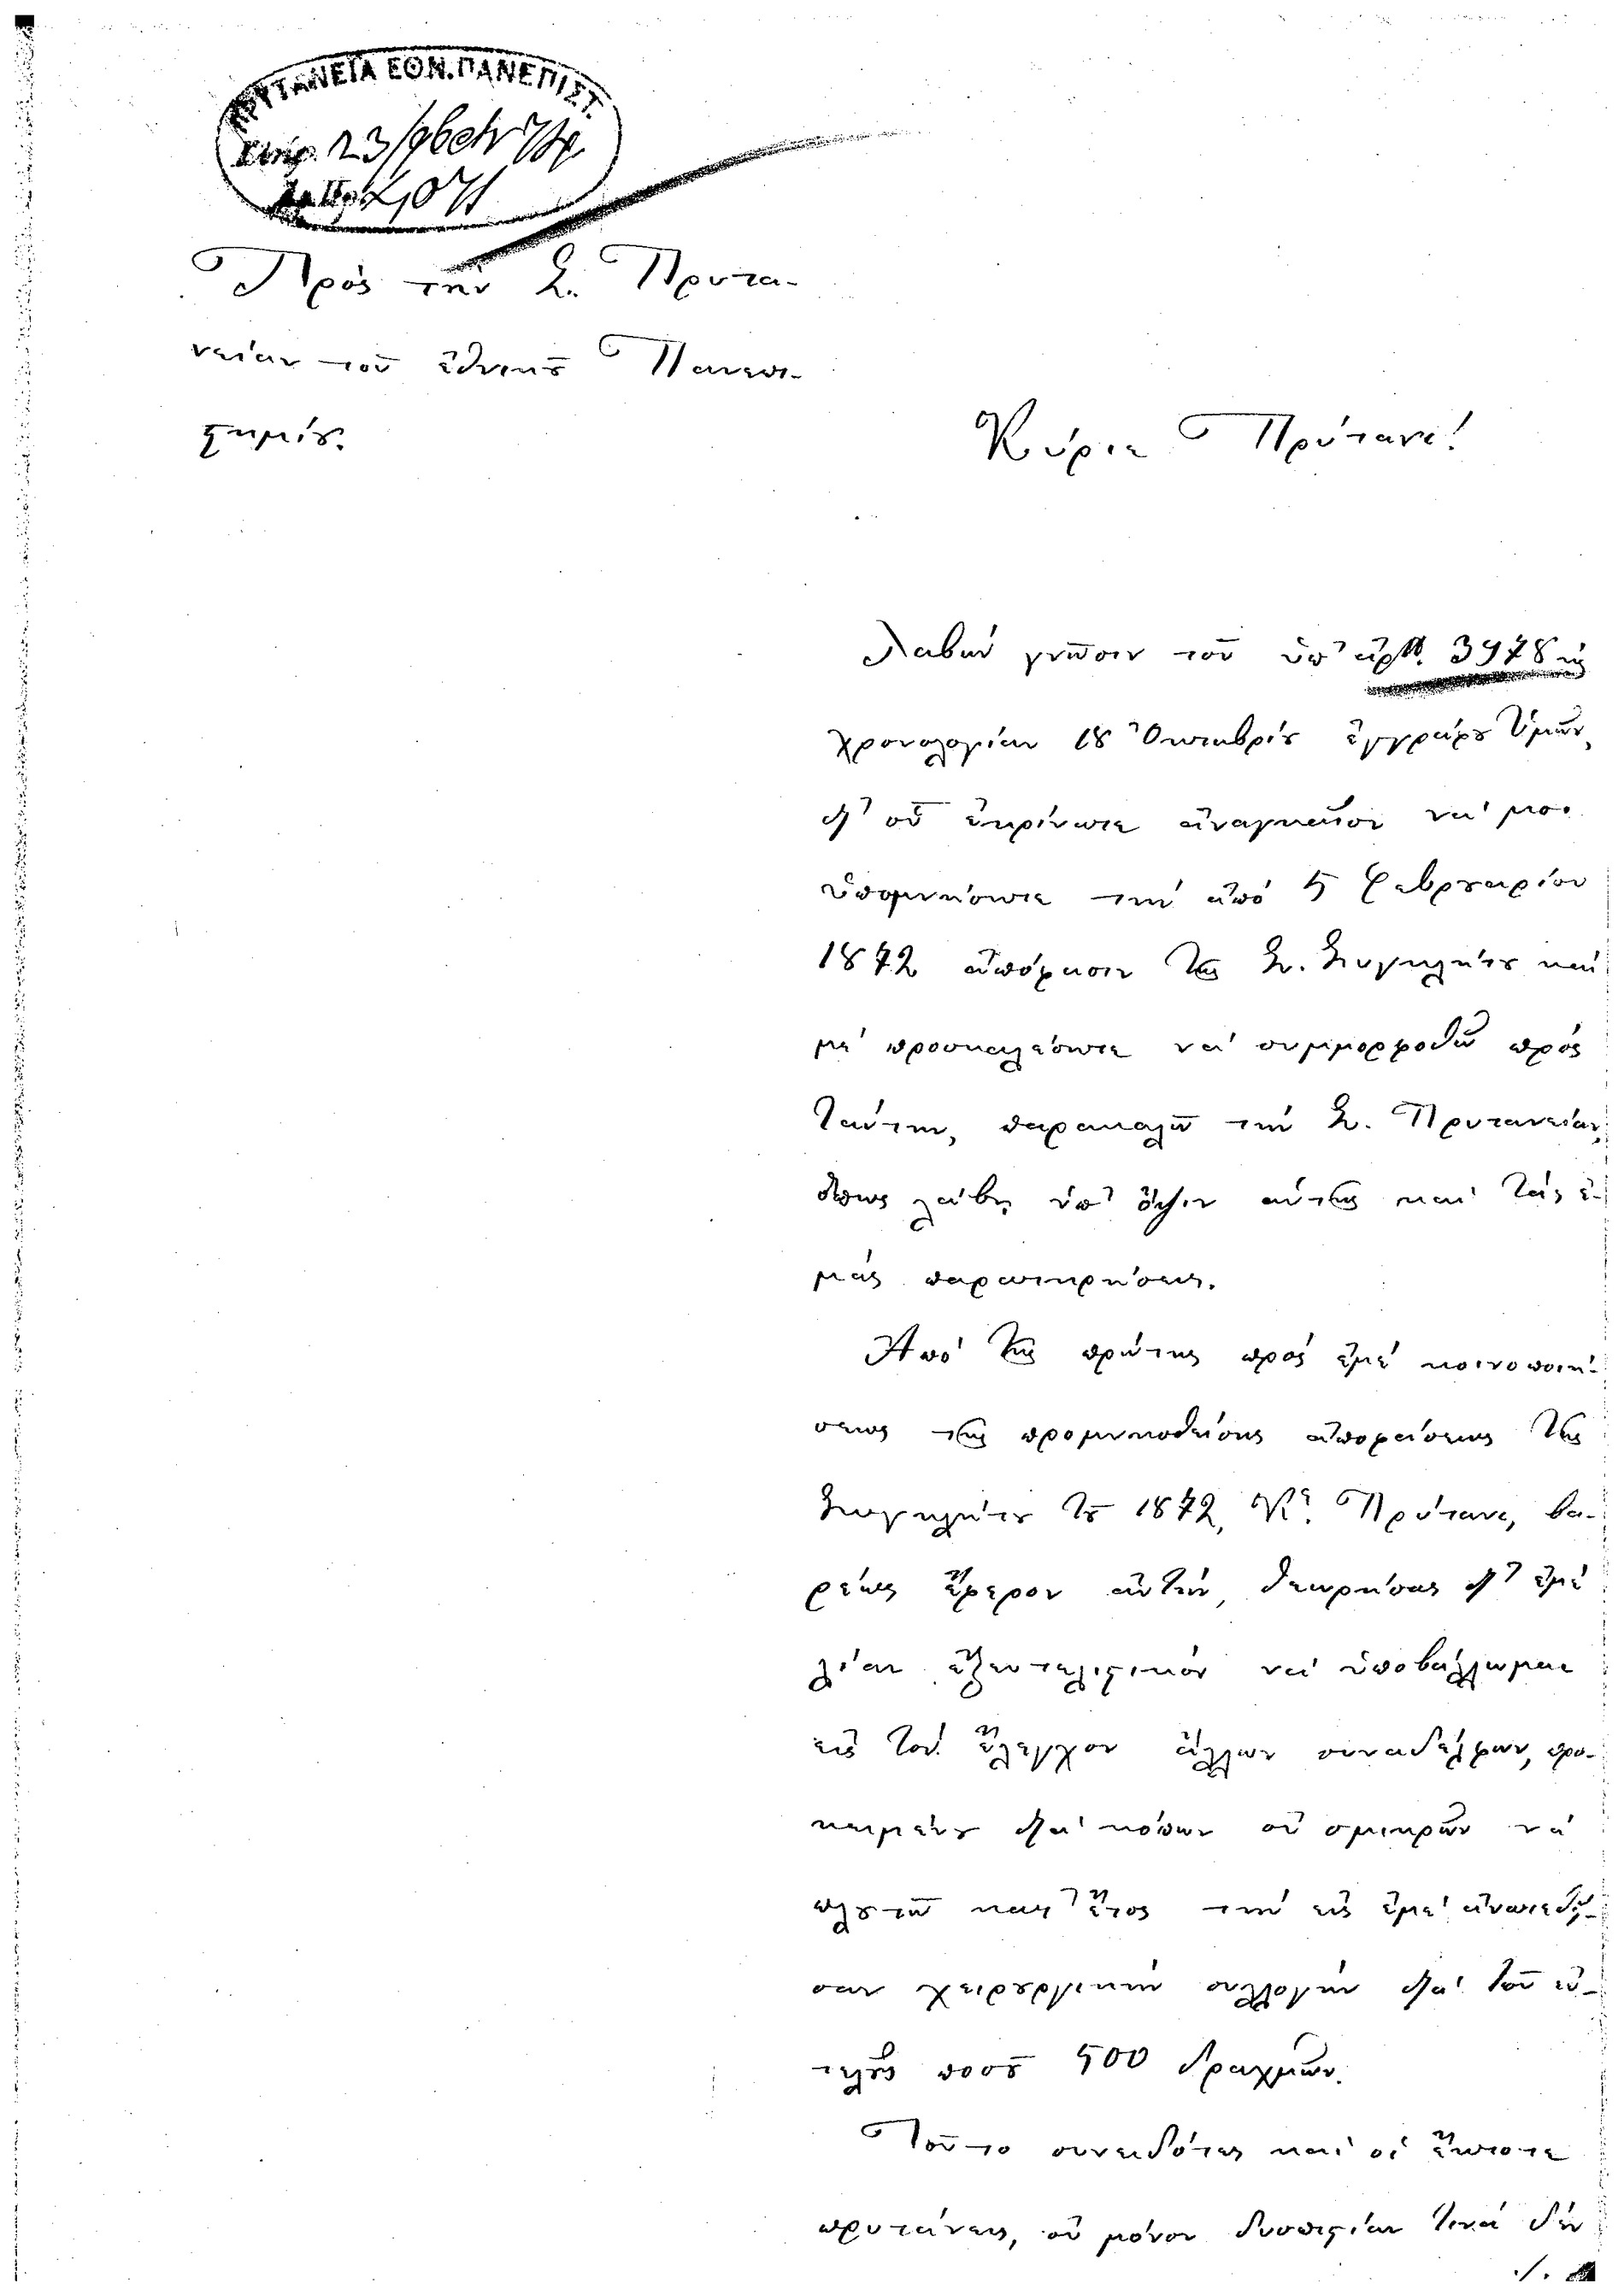 ΠΡΥΤΑΝΕΙΑ ΕΘΝ. ΠΑΝΕΠΙΣΤ.
23
Πρὸς τὴν Σ. Πρυτα-
νείαν τοῦ ἐθνικοῦ Πανεπι-
στημίου.
Κύριε Πρύτανι!
Λαβὼν γνῶσιν τοῦ ὑπ' ἀρθ. 3978 καὶ
χρονολογίαν 18 Ὀκτωβρίου ἐγγράφου Ὑμῶν,
δι' οὗ ἐκρίνατε ἀναγκαῖον νά μοι
ὑπομνήσητε τὴν ἀπὸ 5 Φεβρουαρίου
1872 ἀπόφασιν τῆς Σ. Συγκλήτου καὶ
μὲ προσκαλέσητε νὰ συμμορφωθῶ πρὸς
ταύτην, παρακαλῶ τὴν Σ. Πρυτανείαν,
ὅπως λάβῃ ὑπ' ὄψιν αὐτῆς καὶ τὰς ἐ-
μὰς παρατηρήσεις.
Ἀπὸ τῆς πρώτης πρὸς ἐμὲ κοινοποιή-
σεως τῆς προμνησθείσης ἀποφάσεως τῆς
Συγκλήτου τοῦ 1872, Κε. Πρύτανι, βα-
ρέως ἔφερον αὐτήν, θεωρήσας δι' ἐμὲ
λίαν ἐξευτελιστικὸν νὰ ὑποβάλλωμαι
εἰς τὸν ἔλεγχον ἄλλων συναδέλφων, προ-
κειμένου διὰ κόπων οὐ σμικρῶν νὰ
πλουτῶ κατ' ἔτος τὴν εἰς ἐμὲ ἀνατεθεῖ-
σαν συλλογὴν διὰ τοῦ εὐ-
τελοῦς ποσοῦ 500 δραχμῶν.
Τοῦτο συνειδότες καὶ οἱ ἔκτοτε
πρυτάνεις, οὐ μόνον δυσπιστίαν τινὰ δὲν